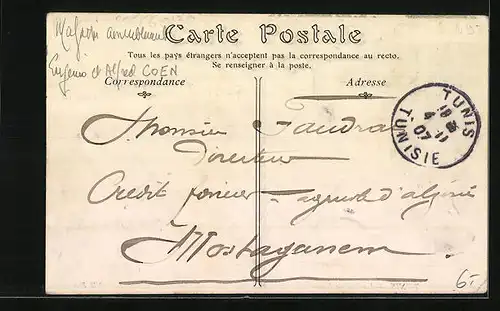 Magasin ameublement
Carte Postale
Eugenio et Alfred COEN
Tous les pays étrangers n'acceptent pas la correspondance au recto.
Se renseigner à la poste.
Correspondance
Adresse
TUNIS
18
4 11
07
TUNISIE
Monsieur Gaudrat
Directeur
Credit foncier - agricole d'algérie
Mostaganem
6.-